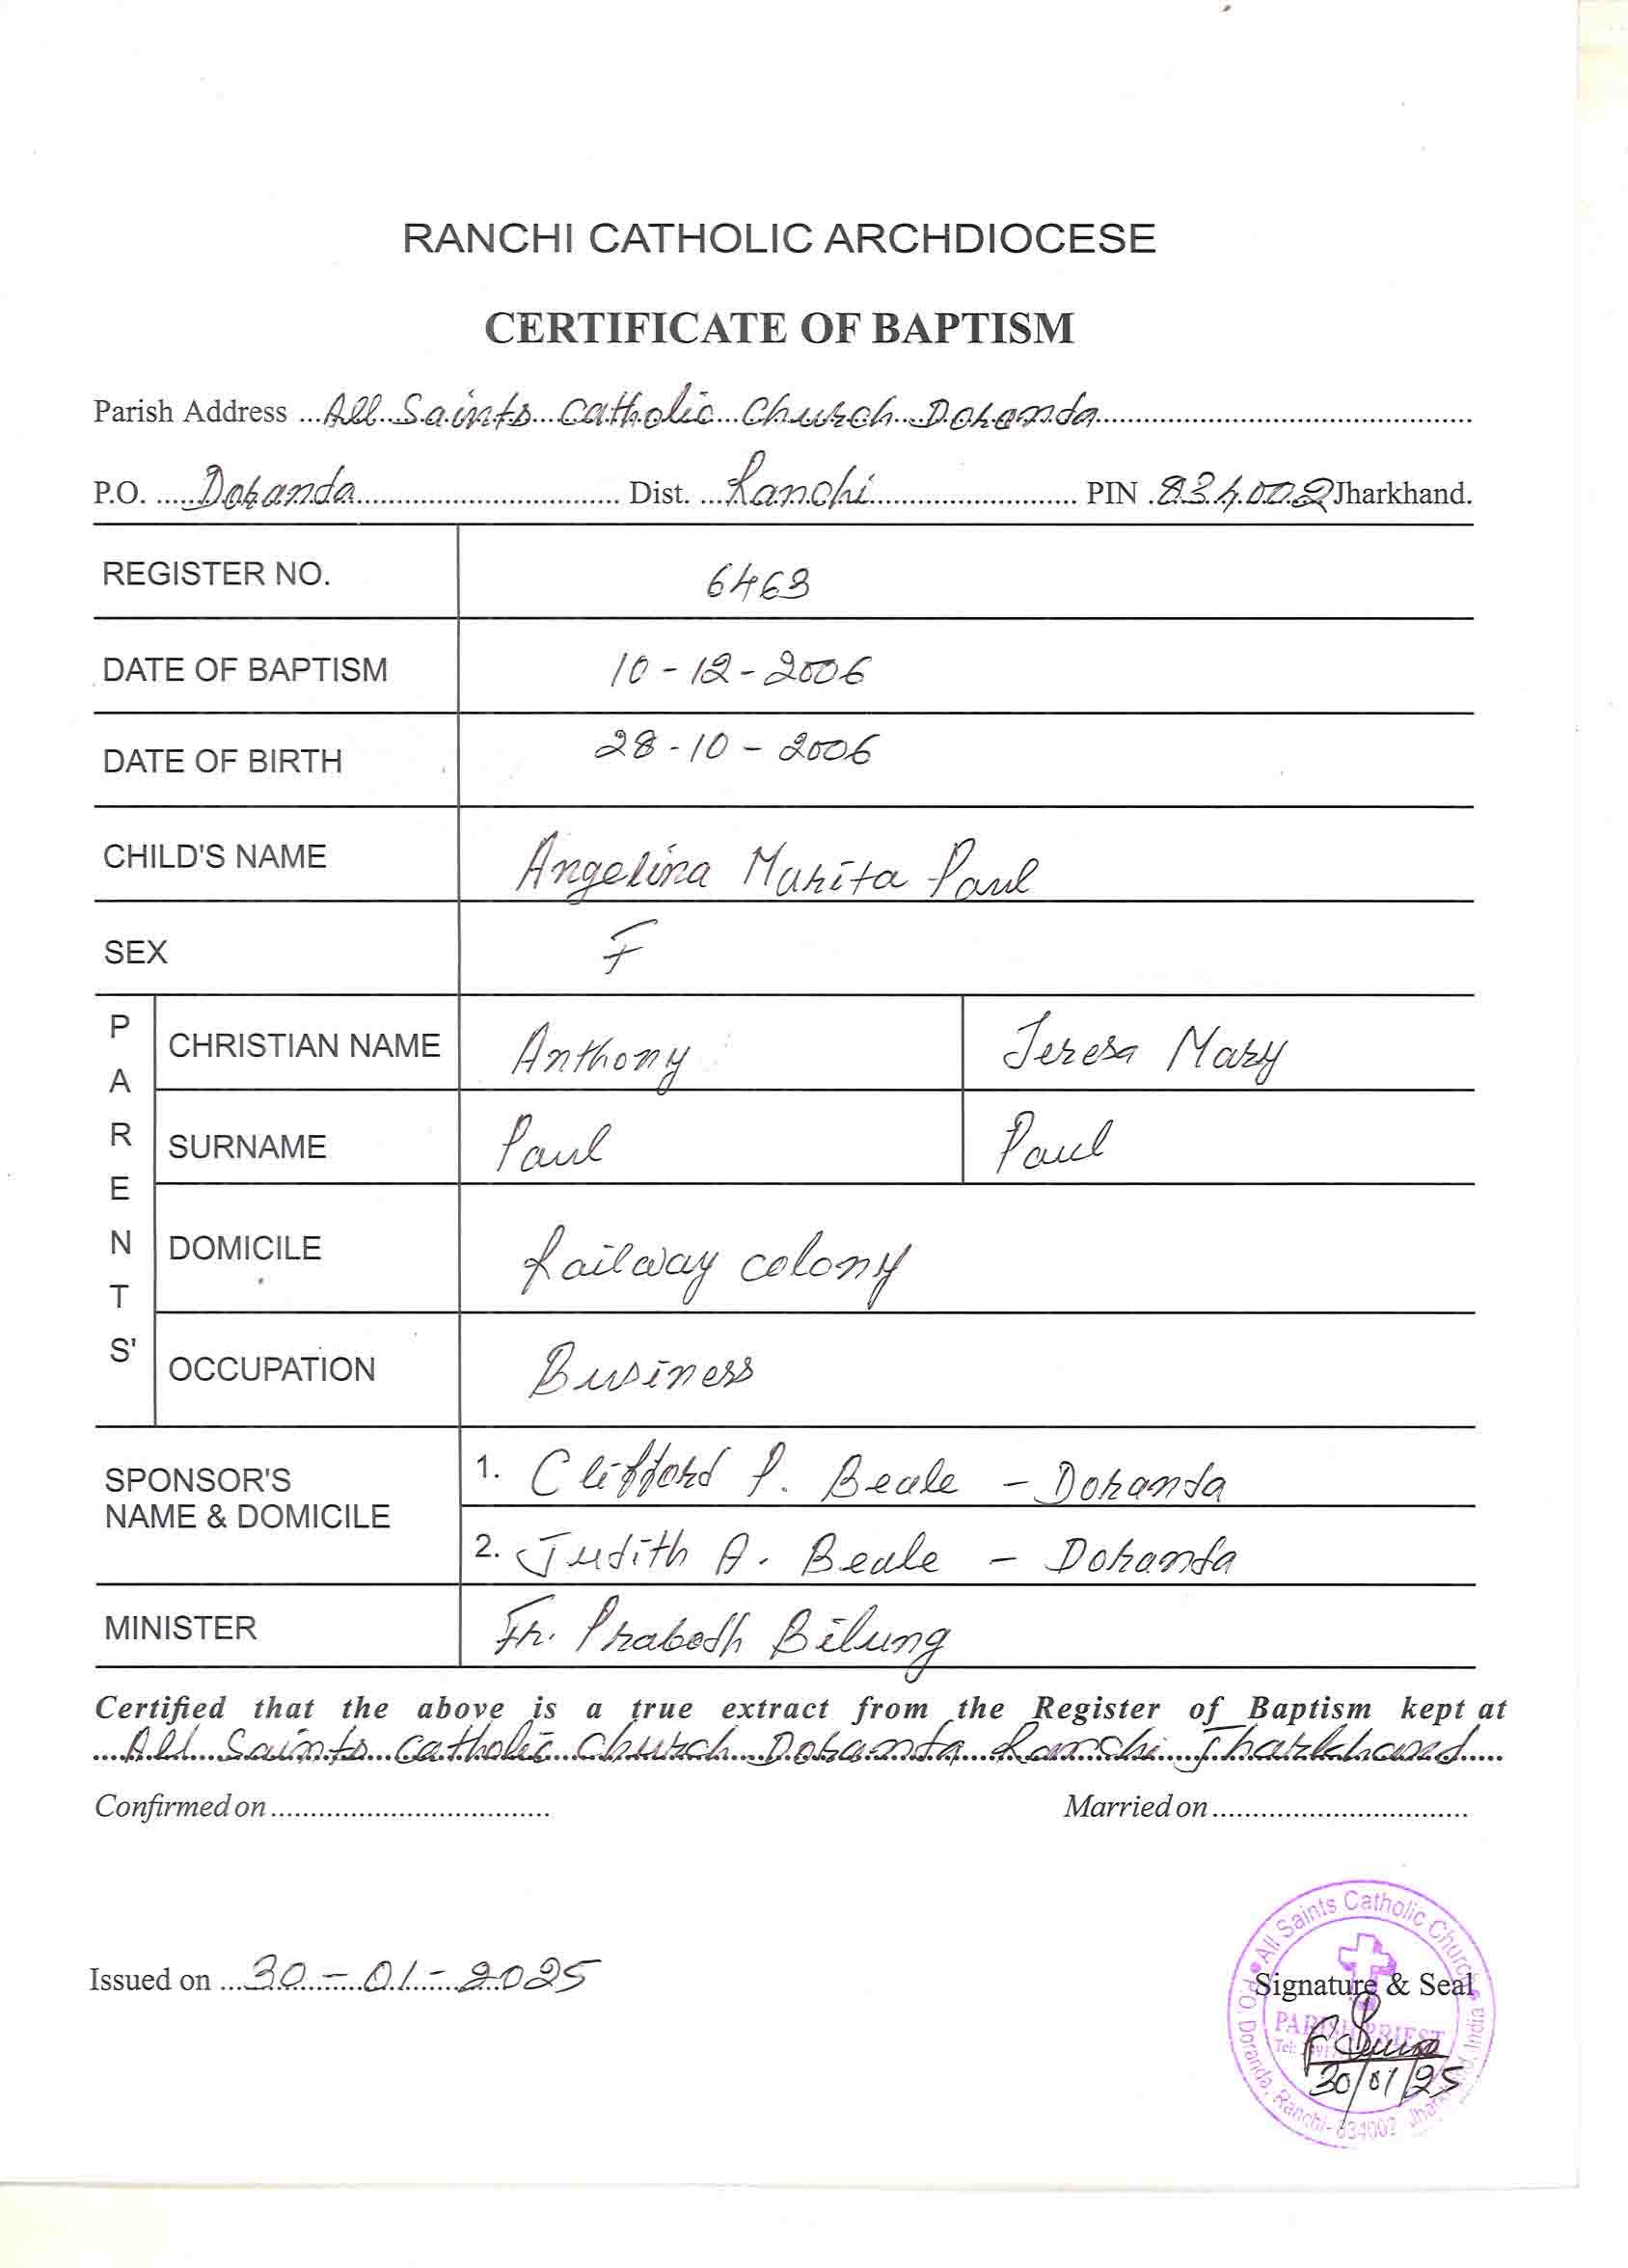 RANCHI CATHOLIC ARCHDIOCESE
CERTIFICATE OF BAPTISM
Parish Address ...All Saints Catholic Church Doranda...
P.O. ...Doranda... Dist. ...Ranchi... PIN .834002 Jharkhand.
REGISTER NO. 6463
DATE OF BAPTISM 10-12-2006
DATE OF BIRTH 28-10-2006
CHILD'S NAME Angelina Marita Paul
SEX F
PARENTS'
CHRISTIAN NAME Anthony Teresa Mary
SURNAME Paul Paul
DOMICILE Railway colony
OCCUPATION Business
SPONSOR'S
NAME & DOMICILE
1. Clifford P. Beale - Doranda
2. Judith A. Beale - Doranda
MINISTER Fr. Prabodh Bilung
Certified that the above is a true extract from the Register of Baptism kept at
...All Saints Catholic Church Doranda Ranchi Jharkhand...
Confirmed on ...
Married on ...
Issued on ...30-01-2025
Signature & Seal
All Saints Catholic Church
PARISH PRIEST
Tel:
30/01/25
P.O. Doranda, Ranchi-834002 Jharkhand, India